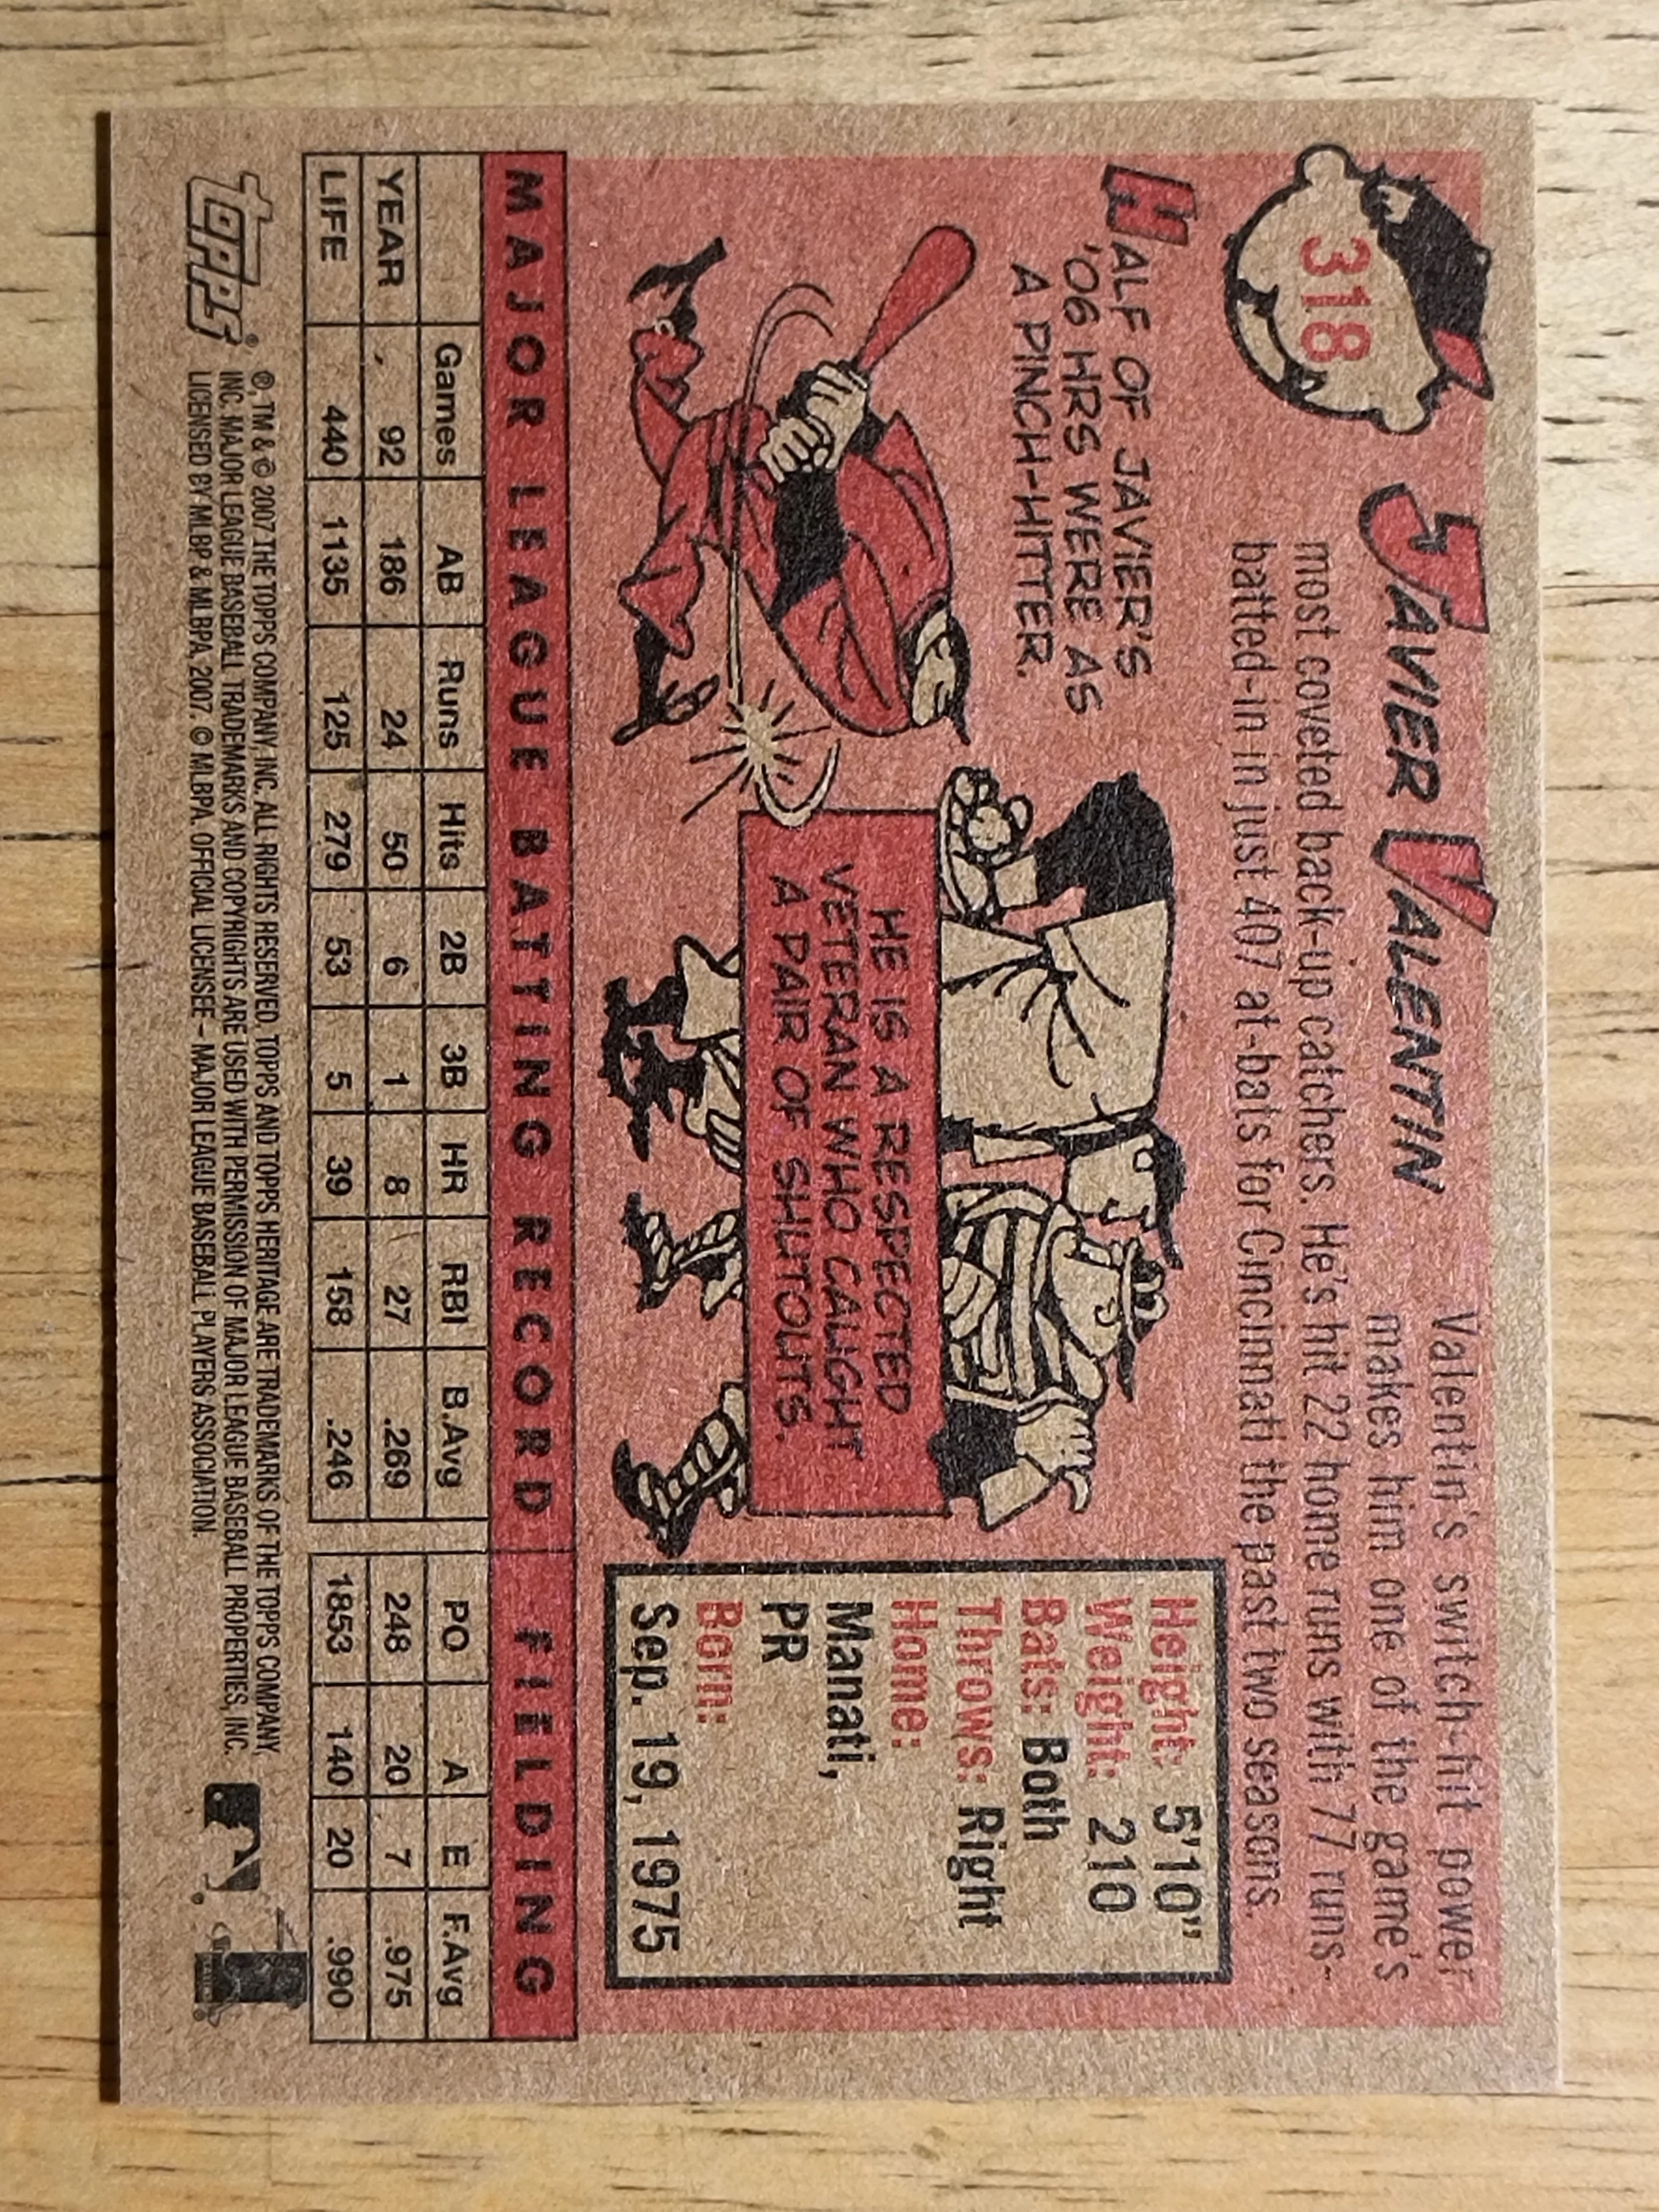 318
JAVIER VALENTIN
Valentin's switch-hit power
makes him one of the game's
most coveted back-up catchers. He's hit 22 home runs with 77 runs-
batted-in in just 407 at-bats for Cincinnati the past two seasons.
HALF OF JAVIER'S
'06 HRS WERE AS
A PINCH-HITTER.
HE IS A RESPECTED
VETERAN WHO CAUGHT
A PAIR OF SHUTOUTS.
Height: 5'10"
Weight: 210
Bats: Both
Throws: Right
Home:
Manati,
PR
Born:
Sep. 19, 1975
MAJOR LEAGUE BATTING RECORD FIELDING
Games AB Runs Hits 2B 3B HR RBI B.Avg PO A E F.Avg
YEAR 92 186 24 50 6 1 8 27 .269 248 20 7 .975
LIFE 440 1135 125 279 53 5 39 158 .246 1853 140 20 .990
topps®
®, TM & © 2007 THE TOPPS COMPANY, INC. ALL RIGHTS RESERVED. TOPPS AND TOPPS HERITAGE ARE TRADEMARKS OF THE TOPPS COMPANY,
INC. MAJOR LEAGUE BASEBALL TRADEMARKS AND COPYRIGHTS ARE USED WITH PERMISSION OF MAJOR LEAGUE BASEBALL PROPERTIES, INC.
LICENSED BY MLBP & MLBPA, 2007. © MLBPA. OFFICIAL LICENSEE – MAJOR LEAGUE BASEBALL PLAYERS ASSOCIATION.